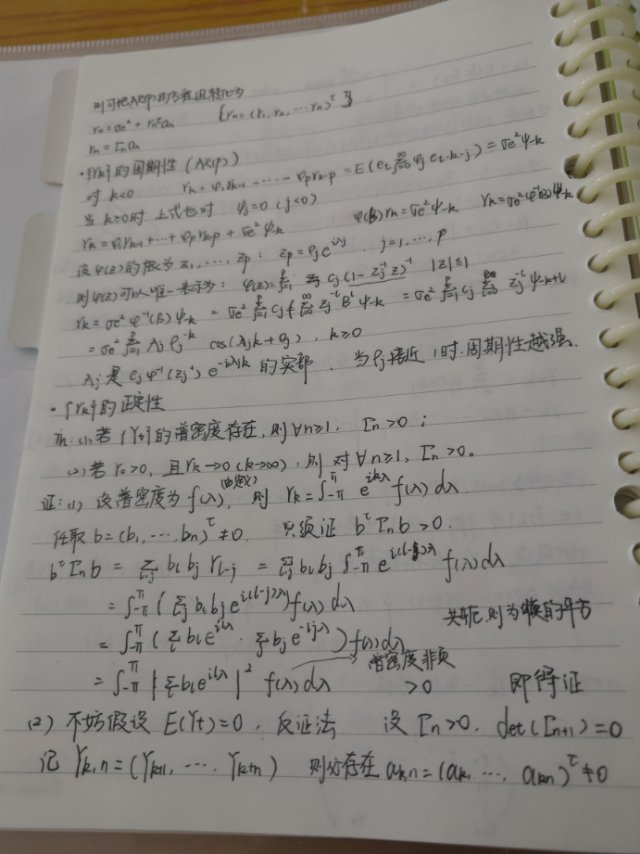 则可把AR(p)的方程组转化为
γ₀ = σe² + γnᵀan {γn = (γ1, γ2, ... γn)ᵀ}
γn = Γnan
·{γk}的周期性 (AR(p))
对 k<0 γk = φ1γk-1 ...... φpγk-p = E(et Σ ψj et-k-j) = σe²ψ-k
当 k≥0时 上式也对 ψj=0 (j<0)
γk = φ1γk-1 + ... + φpγk-p + σe²ψ-k φ(B)γk = σe²ψ-k γk = σe²φ⁻¹(B)ψ-k
设φ(z)的根为z1, ..., zp: zj = ρj e^{iλj} , j=1, ..., p
则 可以唯一表示为: Σ cj(1-zj⁻¹z)⁻¹ |z|≤1
γk = σe²φ⁻¹(B)ψ-k = σe² Σ cj Σ zj⁻ˡBˡψ-k = σe² Σ cj Σ zj⁻ˡ ψ-k+l
= σe² Σ Aj ρj⁻ᵏ cos(λjk+θj) , k≥0
是 cj ψ(zj⁻¹) e^{-iλjk} 的实部. 当ρj接近1时, 周期性越强.
·{γk}的正定性
(1) 若{Yt}的谱密度存在, 则∀n≥1, Γn>0 ;
(2) 若γ₀>0, 且γk→0 (k→∞), 则 对∀n≥1, Γn>0.
证: (1) 设谱密度为f(λ), (由定义) 则 γk = ∫_{-π}^{π} e^{ikλ} f(λ) dλ
任取 b=(b1, ... bn)ᵀ≠0. 只须证 bᵀΓnb>0.
bᵀΓnb = Σ_{i,j} bi bj γi-j = Σ_{i,j} bi bj ∫_{-π}^{π} e^{i(i-j)λ} f(λ)dλ
= ∫_{-π}^{π} (Σ_{i,j} bi bj e^{i(i-j)λ}) f(λ) dλ
= ∫_{-π}^{π} (Σ_i bi e^{iiλ} · Σ_j bj e^{-ijλ}) f(λ) dλ 共轭, 则为模的平方
= ∫_{-π}^{π} |Σ_i bi e^{iiλ}|² f(λ) dλ 谱密度非负 >0 即得证
(2) 不妨假设 E(Yt)=0, 反证法 设Γn>0, det(Γn+1)=0
记 Yk,n = (Yk+1, ..., Yk+n) 则 存在 ak,n = (ak1, ..., akn)ᵀ≠0